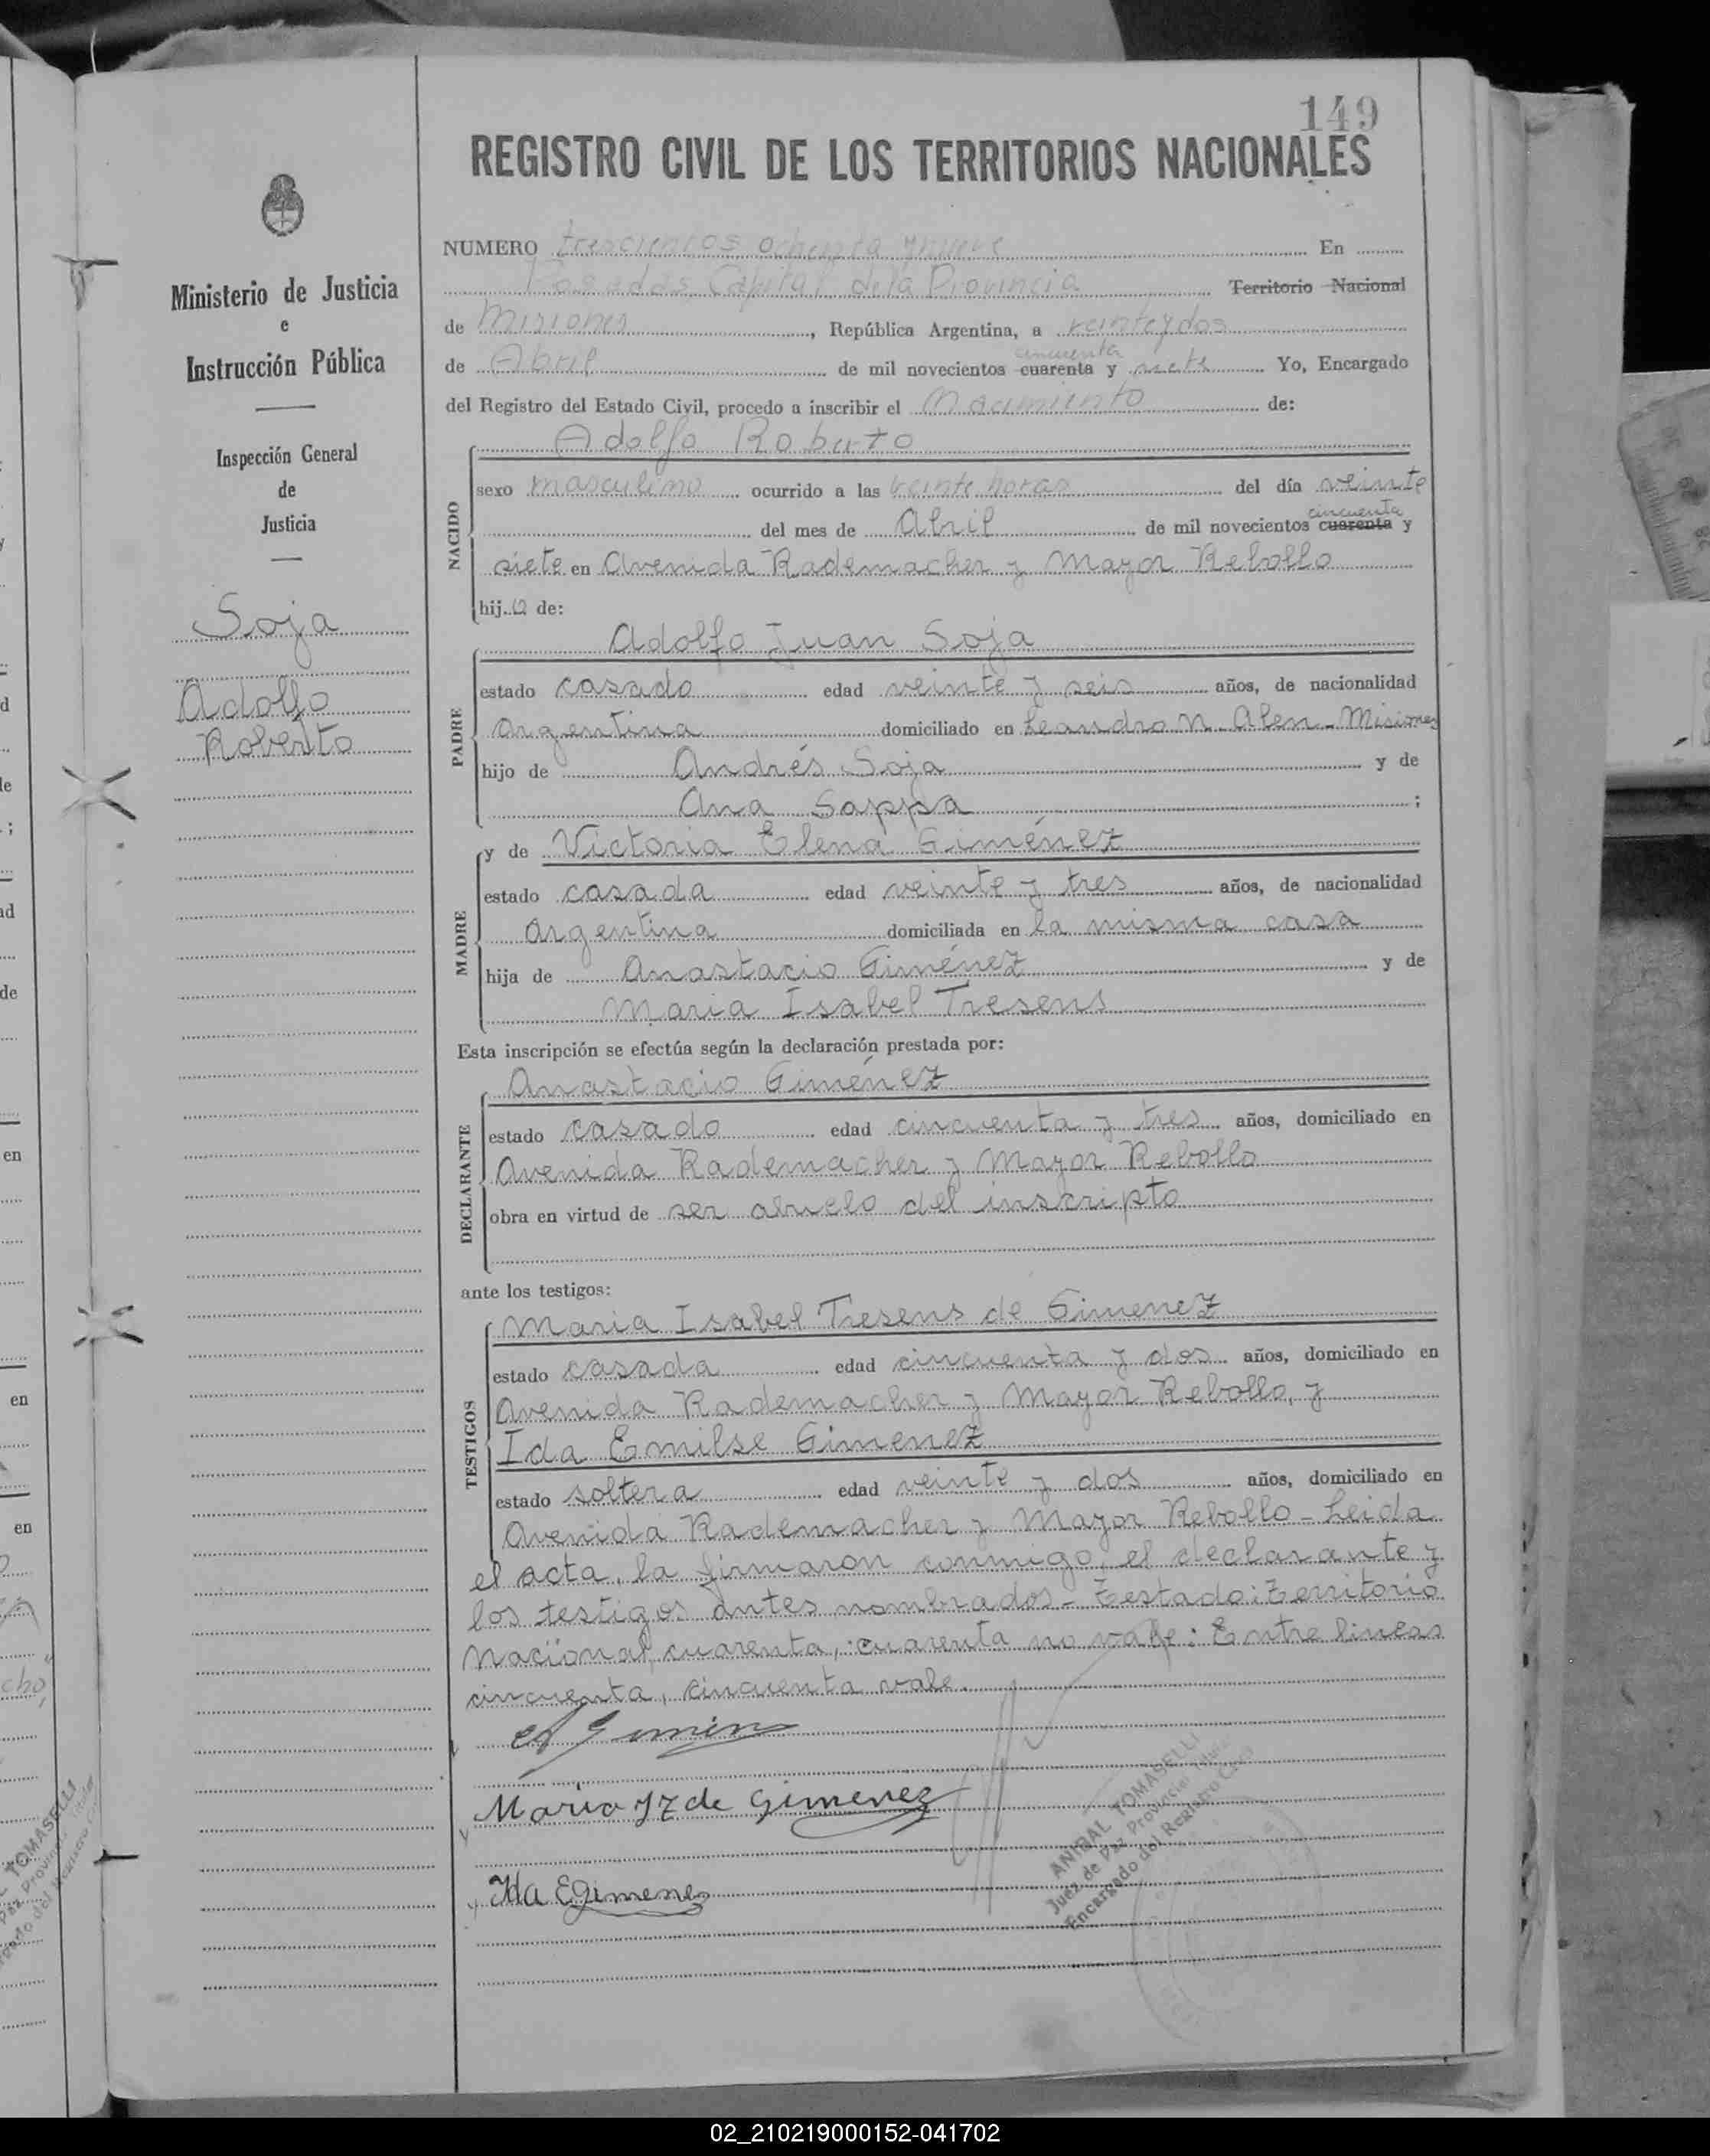 149
REGISTRO CIVIL DE LOS TERRITORIOS NACIONALES
Ministerio de Justicia
e
Instrucción Pública
Inspección General
de
Justicia
Soja
Adolfo
Roberto
NUMERO trescientos ochenta y nueve En
Posadas, Capital de la Provincia Territorio Nacional
de Misiones, República Argentina, a veinte y dos
cincuenta
de Abril de mil novecientos cuarenta y siete Yo, Encargado
del Registro del Estado Civil, procedo a inscribir el Nacimiento de:
Adolfo Roberto
NACIDO
sexo masculino ocurrido a las veinte horas del día veinte
cincuenta
del mes de Abril de mil novecientos cuarenta y
siete en Avenida Rademacher y Mayor Rebollo
hijo de:
Adolfo Juan Soja
PADRE
estado casado edad veinte y seis años, de nacionalidad
argentina domiciliado en Leandro N. Alen - Misiones
hijo de Andrés Soja y de
Ana Sappa ;
MADRE
y de Victoria Elena Giménez
estado casada edad veinte y tres años, de nacionalidad
argentina domiciliada en la misma casa
hija de Anastacio Giménez y de
Maria Isabel Tresens
Esta inscripción se efectúa según la declaración prestada por:
DECLARANTE
Anastacio Giménez
estado casado edad cincuenta y tres años, domiciliado en
Avenida Rademacher y Mayor Rebollo
obra en virtud de ser abuelo del inscripto
ante los testigos:
TESTIGOS
Maria Isabel Tresens de Gimenez
estado casada edad cincuenta y dos años, domiciliado en
Avenida Rademacher y Mayor Rebollo, y
Ida Emilse Gimenez
estado soltera edad veinte y dos años, domiciliado en
Avenida Rademacher y Mayor Rebollo - Leida
el acta, la firmaron conmigo, el declarante y
los testigos antes nombrados - Testado: Territorio
Nacional, cuarenta, cuarenta no vale: Entre lineas
cincuenta, cincuenta vale.
Maria de Gimenez
Ida E Gimenez
ANIBAL TOMASELLI
Juez de Paz Provincial Titular
Encargado del Registro Civil
02_210219000152-041702